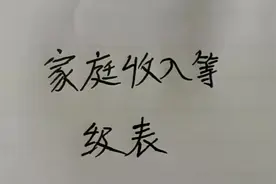 家庭收入等
级表